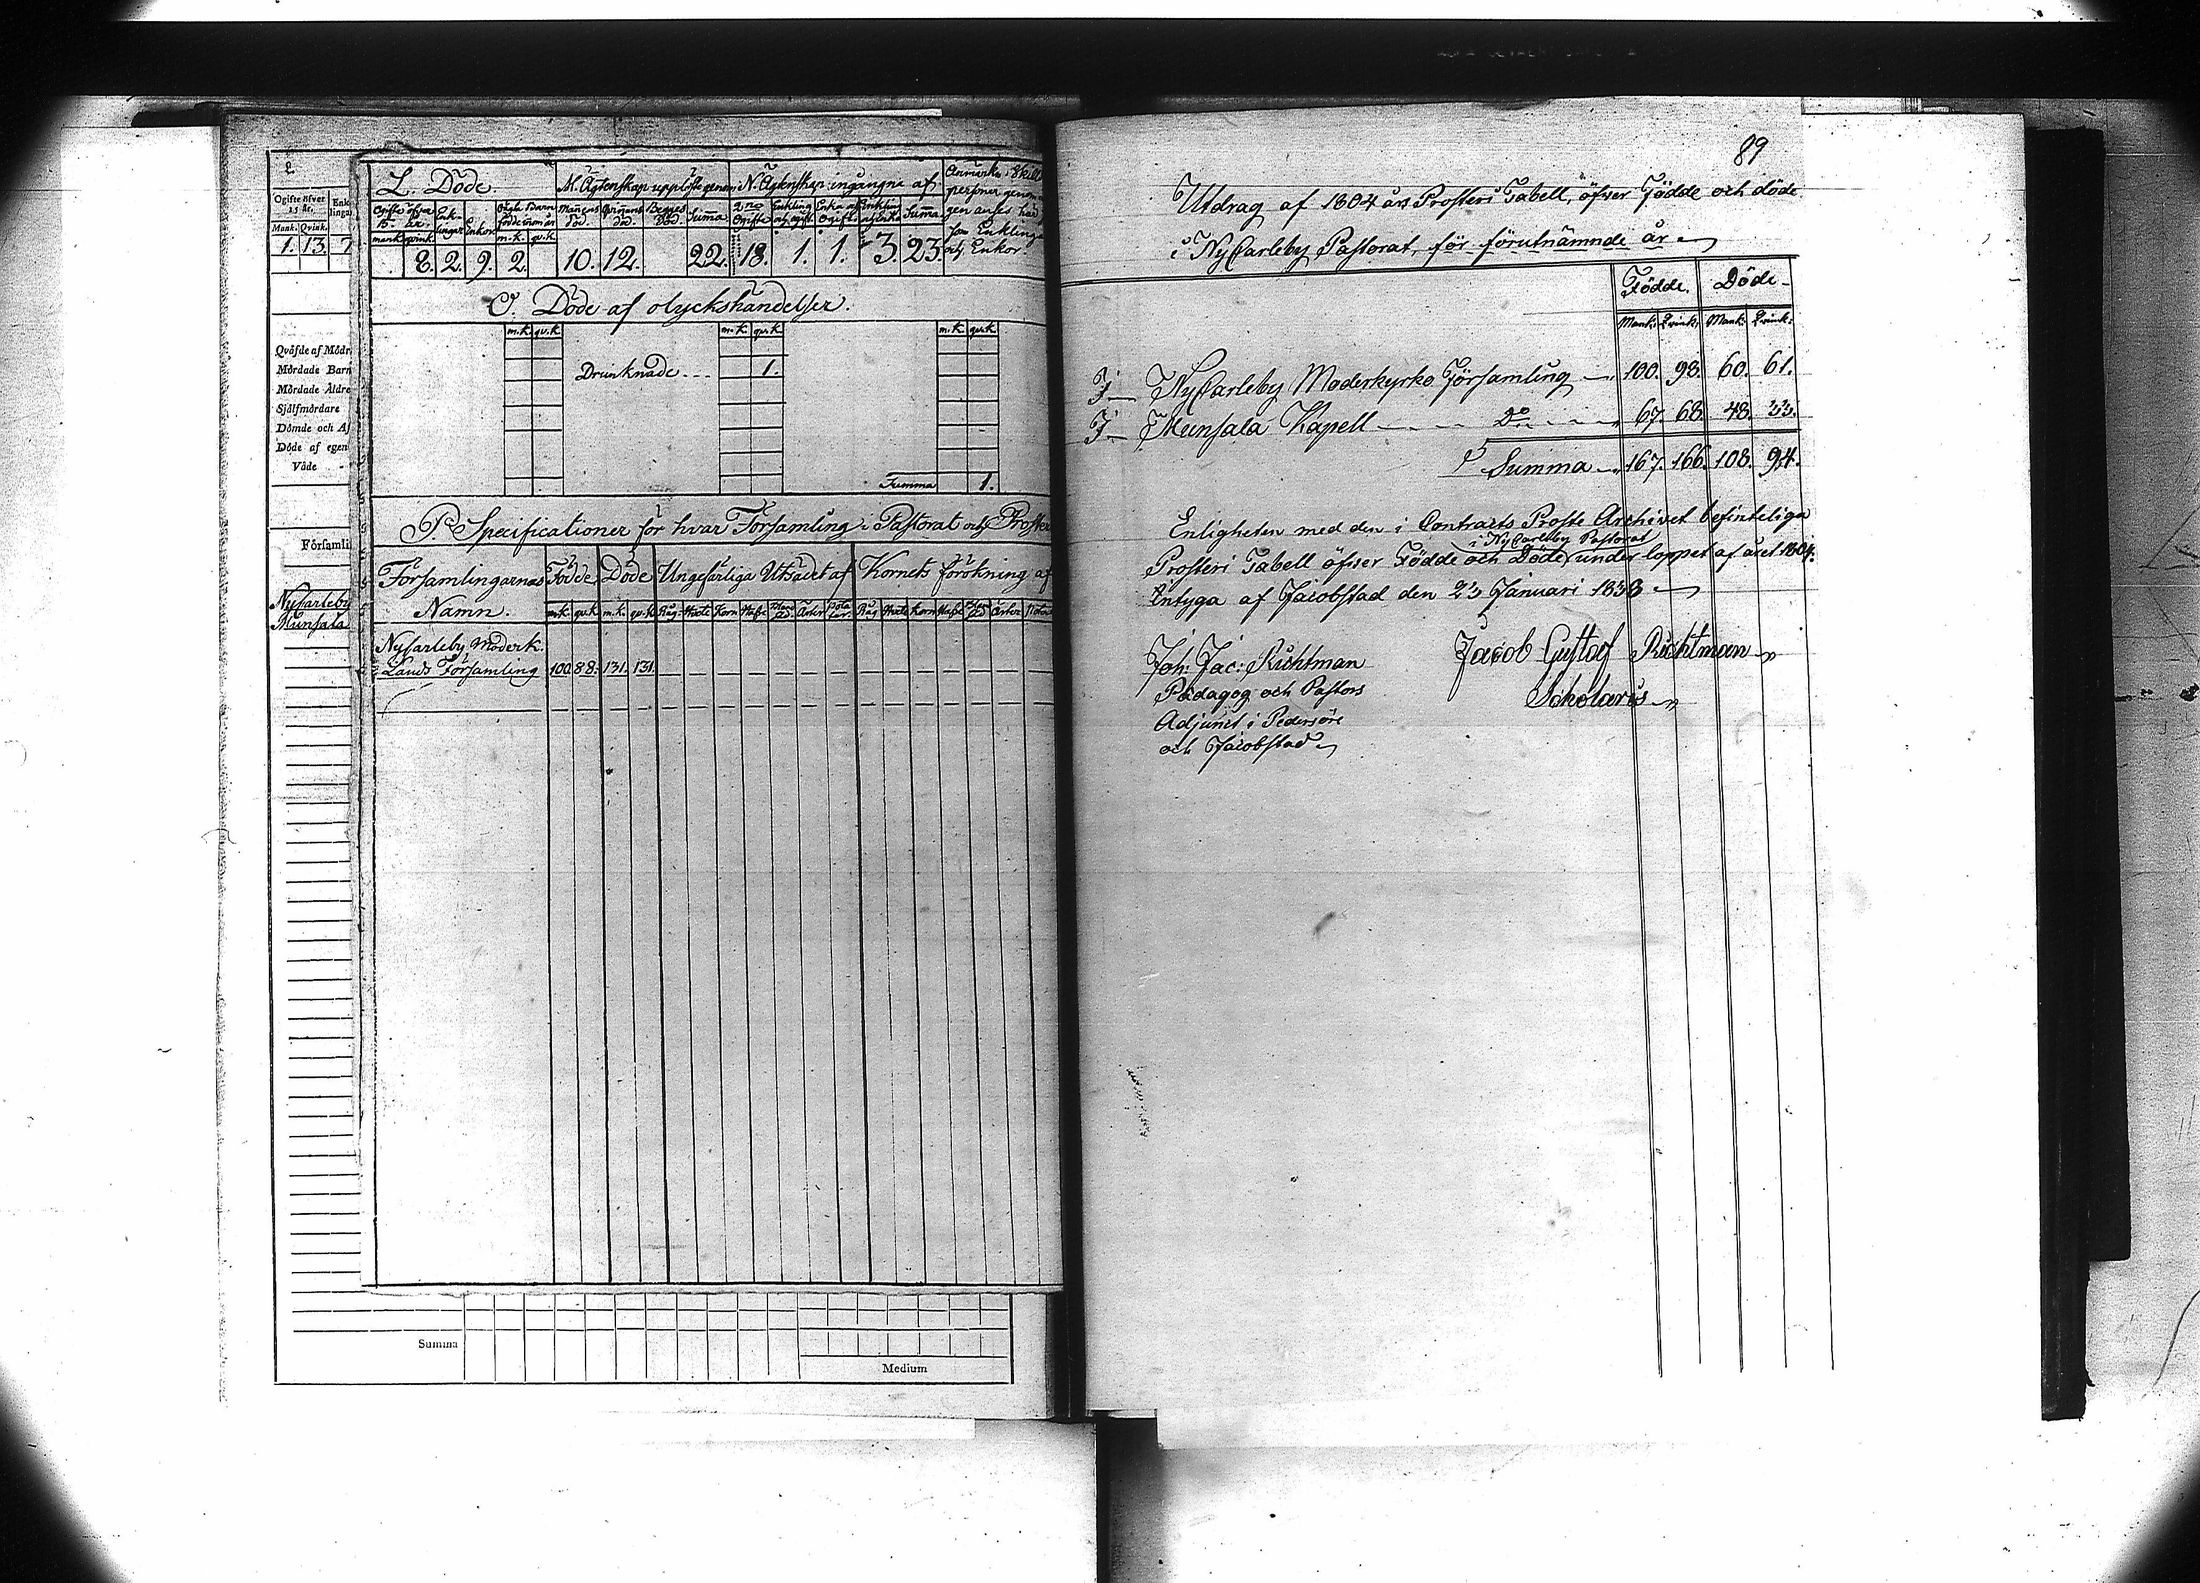 2
Ogifte öfver
15 år.
Mank. Qvink.
1. 13. 7
Qväfde af Mödr
Mördade Barn
Mördade Äldre
Sjålfmördare
Dömde och Af
Döde af egen
Våde
Församl
Nycarleby
Munsala
L. Döde.
M. Ägtenskap upplöste genom
N. Ägtenskap ingångne af
Anmärkn: Skill
personer genom
gen anses här
som Enkling
och Enkor.
Ogifte öfver 15 år. Enklingar Enkor
Mannens död. Qvinnans död. Begges död. Summa
2ne Ogifte Enkling och ogift Enka och Ogift Summa
mank. qvink. m.k. qv.k.
8. 2. 9. 2. 10. 12. 22. 18. 1. 1. 3. 23.
O. Döde af olyckshändelser.
m.k. qv.k. m.k. qv.k. m.k. qv.k.
Drunknade 1.
Summa 1.
P. Specificationer för hvar Församling i Pastorat och Proster
Församlingarnas Födde Döde Ungefärliga Utsädet af Kornets förökning af
Namn. m.k. qv.k. m.k. qv.k. Råg Hvete Korn Hafre Bland säd. Ärter Pota ter. Råg Hvete Korn Hafre Bland säd Ärter
Nycarleby Moderk.
Lands Församling 100. 88. 131. 131.
Summa
Medium
89
Utdrag af 1804 års Prosteri Tabell, öfver Födde och döde
i NyCarleby Pastorat, för förutnämnde år
Födde. Döde
Mank: Qvink: Mank: Qvink:
I NyCarleby Moderkyrko Församling 100. 98. 60. 61.
I Munsala Kapell Do 67. 68. 48. 33.
Summa 167. 166. 108. 94.
Enligheten med den i Contracts Proste Archivet befinteliga
i NyCarleby Pastorat
Prosteri Tabell öfver Födde och Döde under loppet af året 1804.
Intyga af Jacobstad den 23 Januari 1838
Joh: Jac: Richtman
Pädagog och Pastors
Adjunct i Pedersöre
och Jacobstad
Jacob Gustaf Richtman
Scholaris